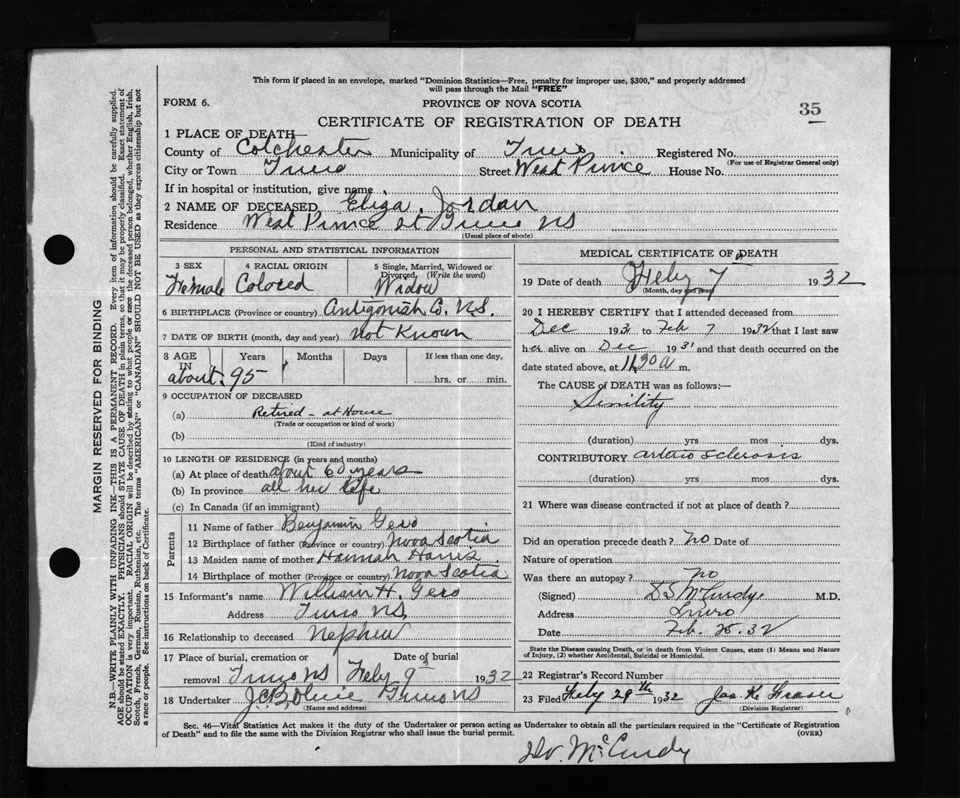 This form if placed in an envelope, marked "Dominion Statistics—Free, penalty for improper use, $300," and properly addressed
will pass through the Mail "FREE"
FORM 6.
PROVINCE OF NOVA SCOTIA
35
CERTIFICATE OF REGISTRATION OF DEATH
1 PLACE OF DEATH—
County of Colchester Municipality of Truro Registered No.
(For use of Registrar General only)
City or Town Truro Street West Prince House No.
If in hospital or institution, give name
2 NAME OF DECEASED Eliza Jordan
Residence West Prince St Truro NS
(Usual place of abode)
PERSONAL AND STATISTICAL INFORMATION
3 SEX 4 RACIAL ORIGIN 5 Single, Married, Widowed or
Divorced (Write the word)
Female Colored Widow
6 BIRTHPLACE (Province or country) Antigonish Co. N.S.
7 DATE OF BIRTH (month, day and year) Not Known
8 AGE IN Years Months Days If less than one day,
about 95 hrs. or min.
9 OCCUPATION OF DECEASED
(a) Retired - at House
(Trade or occupation or kind of work)
(b)
(Kind of industry)
10 LENGTH OF RESIDENCE (in years and months)
(a) At place of death about 60 years
(b) In province all her life
(c) In Canada (if an immigrant)
Parents
11 Name of father Benjamin Gero
12 Birthplace of father (Province or country) Nova Scotia
13 Maiden name of mother Hannah Harris
14 Birthplace of mother (Province or country) Nova Scotia
15 Informant's name William H. Gero
Address Truro NS,
16 Relationship to deceased Nephew
17 Place of burial, cremation or Date of burial
removal Truro NS Feby 9 1932
18 Undertaker Truro NS
(Name and address)
MEDICAL CERTIFICATE OF DEATH
19 Date of death Feby 7 1932
(Month, day and year)
20 I HEREBY CERTIFY that I attended deceased from
Dec 1931 to Feb 7 1932 that I last saw
her alive on Dec 1931 and that death occurred on the
date stated above, at 11.30 A m.
The CAUSE OF DEATH was as follows:—
Senility
(duration) yrs mos dys.
CONTRIBUTORY arterio sclerosis
(duration) yrs mos dys.
21 Where was disease contracted if not at place of death?
Did an operation precede death? no Date of
Nature of operation
Was there an autopsy? no
(Signed) D S McCurdy M.D.
Address Truro
Date Feb. 25. 32
State the Disease causing Death, or in death from Violent Causes, state (1) Means and Nature
of Injury, (2) whether Accidental, Suicidal or Homicidal.
22 Registrar's Record Number
23 Filed Feby 29th 1932 Jas K. Fraser
(Division Registrar)
Sec. 46—Vital Statistics Act makes it the duty of the Undertaker or person acting as Undertaker to obtain all the particulars required in the "Certificate of Registration
of Death" and to file the same with the Division Registrar who shall issue the burial permit.
(OVER)
Dr. McCurdy
MARGIN RESERVED FOR BINDING
N.B.—WRITE PLAINLY WITH UNFADING INK—THIS IS A PERMANENT RECORD. Every item of information should be carefully supplied.
AGE should be stated EXACTLY. PHYSICIANS should STATE CAUSE OF DEATH in plain terms, so that it may be properly classified. Exact statement of
OCCUPATION is very important. RACIAL ORIGIN will be described by stating to what people or race the deceased person belonged, whether English, Irish,
Scotch, French, German, Russian, Ruthenian, etc. The terms "AMERICAN" or "CANADIAN" SHOULD NOT BE USED as they express citizenship but not
a race or people. See instructions on back of Certificate.